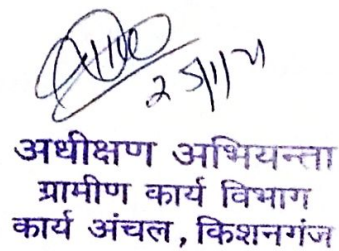 25/11/21
अधीक्षण अभियन्ता
ग्रामीण कार्य विभाग
कार्य अंचल, किशनगंज